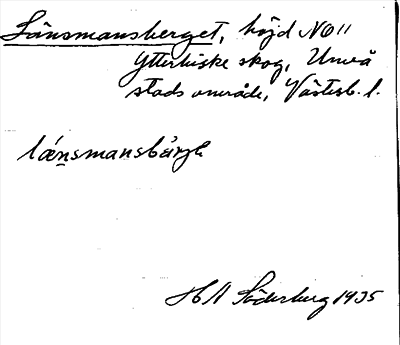 Länsmansberget, höjd NO ii
Ytterhiske skog, Umeå
stads område, Västerb. l.
länsmansbärge
H N Söderberg 1935